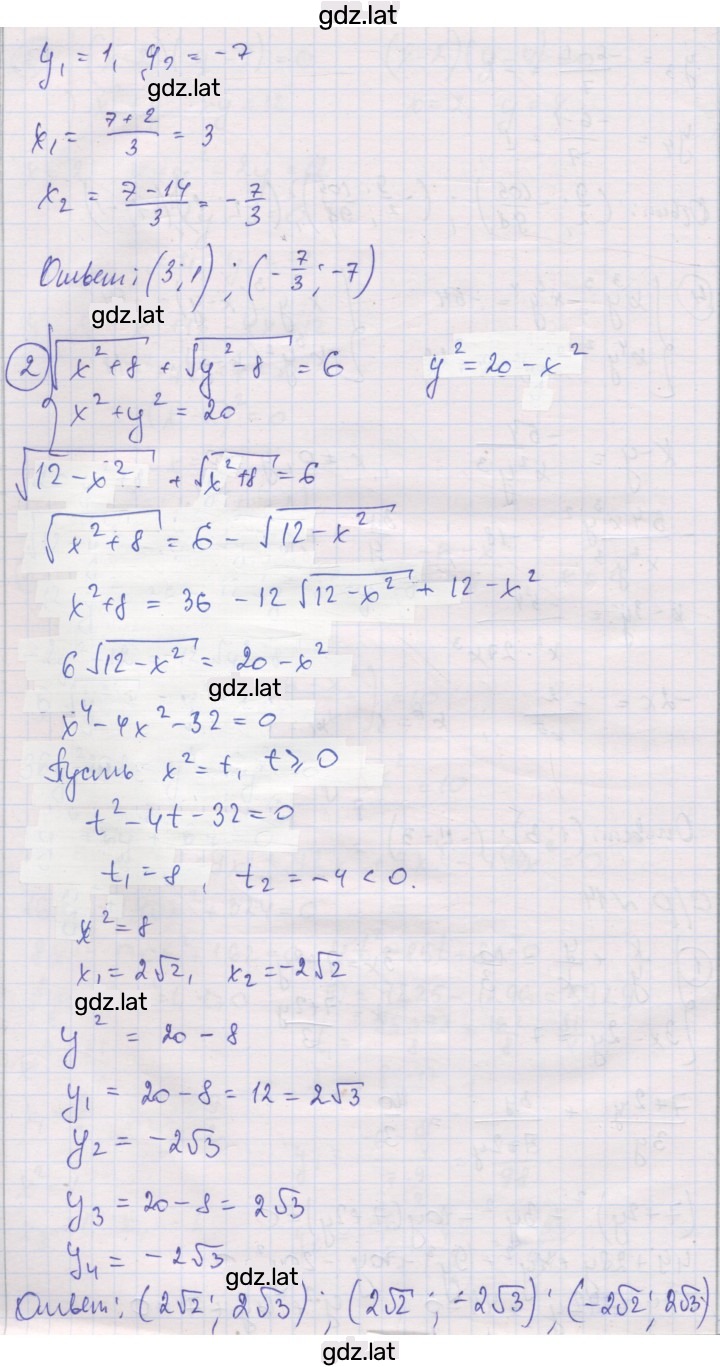 gdz.lat
y₁ = 1, y₂ = -7
gdz.lat
x₁ = (7+2)/3 = 3
x₂ = (7-14)/3 = -7/3
Ответ: (3; 1); (-7/3; -7)
gdz.lat
② { √(x²+8) + √(y²-8) = 6 y² = 20 - x²
x² + y² = 20
√(12-x²) + √(x²+8) = 6
√(x²+8) = 6 - √(12-x²)
x²+8 = 36 - 12√(12-x²) + 12 - x²
6√(12-x²) = 20 - x²
gdz.lat
x⁴ - 4x² - 32 = 0
Пусть x² = t, t ⩾ 0
t² - 4t - 32 = 0
t₁ = 8, t₂ = -4 < 0.
x² = 8
x₁ = 2√2, x₂ = -2√2
gdz.lat
y² = 20 - 8
y₁ = 20 - 8 = 12 = 2√3
y₂ = -2√3
y₃ = 20 - 8 = 2√3
y₄ = -2√3
gdz.lat
Ответ: (2√2; 2√3); (2√2; -2√3); (-2√2; 2√3)
gdz.lat